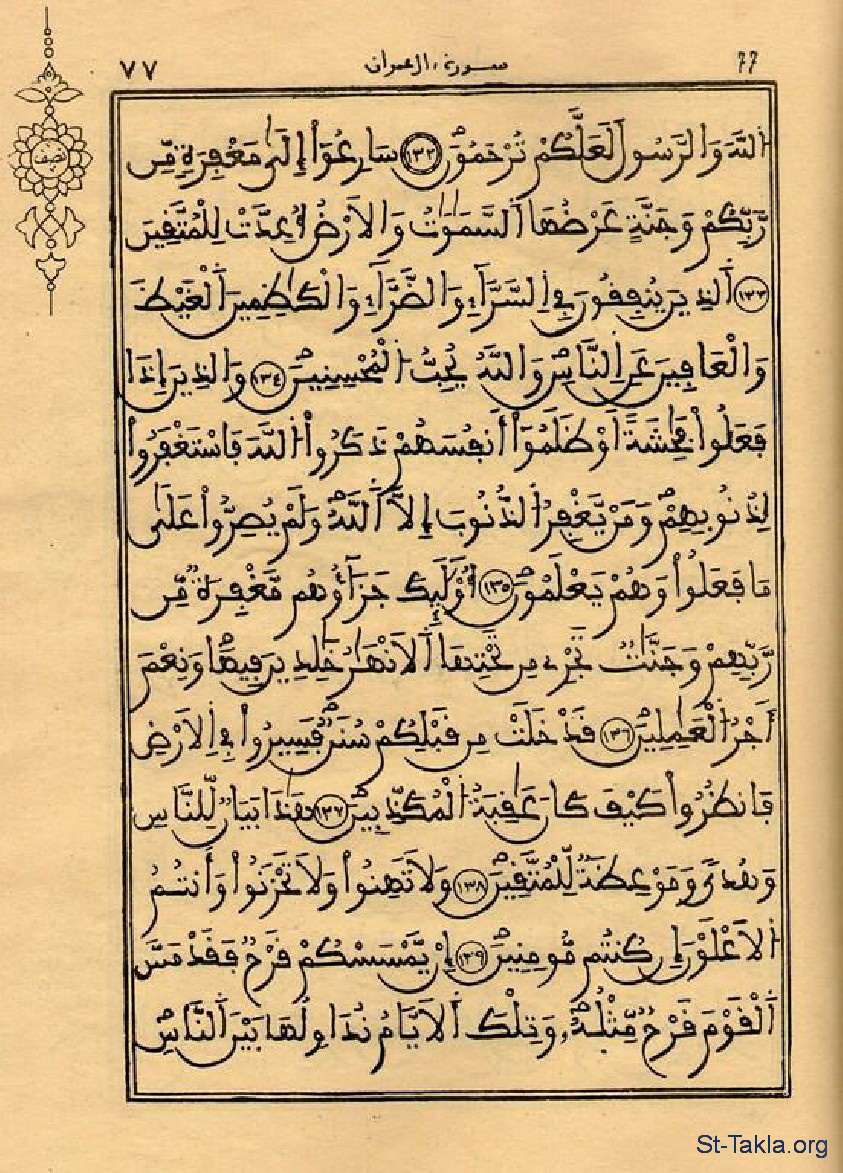 ٧٧ سورة ءال عمران 77
نصف
اَللَّهَ وَالرَّسُولَ لَعَلَّكُمْ تُرْحَمُونَ ١٣٢ سَارِعُوٓاْ إِلَىٰ مَغْفِرَةٍ مِّن
رَّبِّكُمْ وَجَنَّةٍ عَرْضُهَا اَلسَّمَٰوَٰتُ وَالَارْضُ أُعِدَّتْ لِلْمُتَّقِينَ
١٣٣ اَلذِينَ يُنفِقُونَ فِي اِلسَّرَّآءِ وَالضَّرَّآءِ وَالْكَٰظِمِينَ اَلْغَيْظَ
وَالْعَافِينَ عَنِ اِلنَّاسِ وَاللَّهُ يُحِبُّ اُلْمُحْسِنِينَ ١٣٤ وَالذِينَ إِذَا
فَعَلُواْ فَٰحِشَةً اَوْ ظَلَمُوٓاْ أَنفُسَهُمْ ذَكَرُواْ اُللَّهَ فَاسْتَغْفَرُواْ
لِذُنُوبِهِمْ وَمَنْ يَّغْفِرُ اُلذُّنُوبَ إِلَّا اَللَّهُ وَلَمْ يُصِرُّواْ عَلَىٰ
مَا فَعَلُواْ وَهُمْ يَعْلَمُونَ ١٣٥ أُوْلَٰٓئِكَ جَزَآؤُهُم مَّغْفِرَةٌ مِّن
رَّبِّهِمْ وَجَنَّٰتٌ تَجْرِے مِن تَحْتِهَا اَلَانْهَٰرُ خَٰلِدِينَ فِيهَا وَنِعْمَ
أَجْرُ اُلْعَٰمِلِينَ ١٣٦ قَدْ خَلَتْ مِن قَبْلِكُمْ سُنَنٌ فَسِيرُواْ فِي اِلَارْضِ
فَانظُرُواْ كَيْفَ كَانَ عَٰقِبَةُ اُلْمُكَذِّبِينَ ١٣٧ هَٰذَا بَيَانٌ لِّلنَّاسِ
وَهُدىً وَمَوْعِظَةٌ لِّلْمُتَّقِينَ ١٣٨ وَلَا تَهِنُواْ وَلَا تَحْزَنُواْ وَأَنتُمُ
اُلَاعْلَوْنَ إِن كُنتُم مُّومِنِينَ ١٣٩ إِنْ يَّمْسَسْكُمْ قَرْحٌ فَقَدْ مَسَّ
اَلْقَوْمَ قَرْحٌ مِّثْلُهُ وَتِلْكَ اَلَايَّامُ نُدَاوِلُهَا بَيْنَ اَلنَّاسِ
St-Takla.org